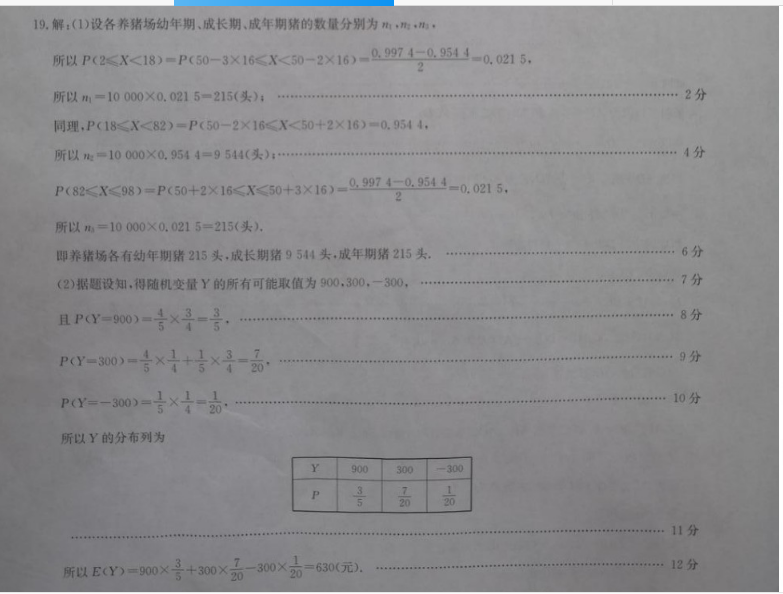 19.解:(1)设各养猪场幼年期、成长期、成年期猪的数量分别为 n₁、n₂、n₃,
所以 P(2≤X<18)=P(50-3×16≤X<50-2×16)=(0.997 4-0.954 4)/2=0.021 5,
所以 n₁=10 000×0.021 5=215(头); …… 2分
同理,P(18≤X<82)=P(50-2×16≤X<50+2×16)=0.954 4,
所以 n₂=10 000×0.954 4=9 544(头); …… 4分
P(82≤X≤98)=P(50+2×16≤X≤50+3×16)=(0.997 4-0.954 4)/2=0.021 5,
所以 n₃=10 000×0.021 5=215(头).
即养猪场各有幼年期猪 215 头,成长期猪 9 544 头,成年期猪 215 头. …… 6分
(2)据题设知,得随机变量 Y 的所有可能取值为 900,300,-300, …… 7分
且 P(Y=900)=4/5×3/4=3/5, …… 8分
P(Y=300)=4/5×1/4+1/5×3/4=7/20, …… 9分
P(Y=-300)=1/5×1/4=1/20, …… 10分
所以 Y 的分布列为
Y 900 300 -300
P 3/5 7/20 1/20
…… 11分
所以 E(Y)=900×3/5+300×7/20-300×1/20=630(元). …… 12分